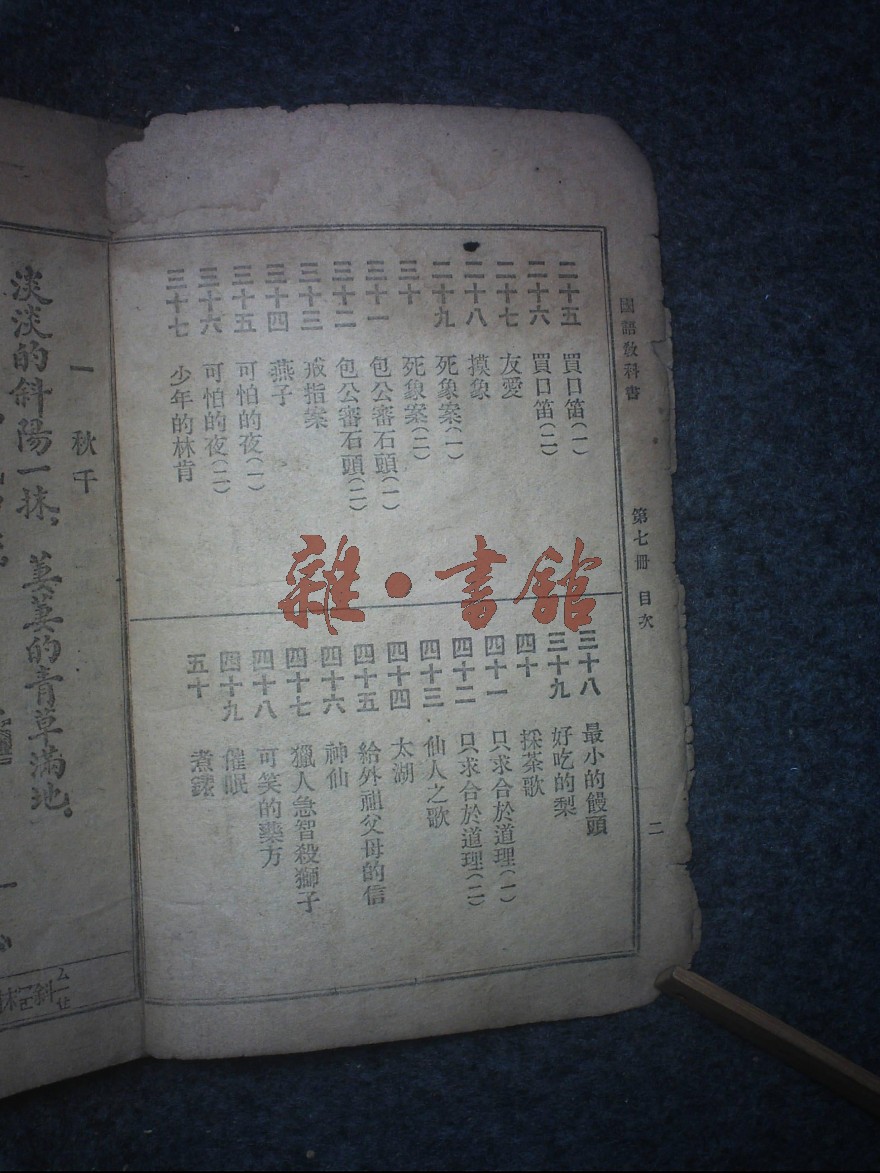 國語教科書　第七冊　目次　二
二十五　買口笛(一)
二十六　買口笛(二)
二十七　友愛
二十八　摸象
二十九　死象案(一)
三十　死象案(二)
三十一　包公審石頭(一)
三十二　包公審石頭(二)
三十三　戒指案
三十四　燕子
三十五　可怕的夜(一)
三十六　可怕的夜(二)
三十七　少年的林肯
三十八　最小的饅頭
三十九　好吃的梨
四十　採茶歌
四十一　只求合於道理(一)
四十二　只求合於道理(二)
四十三　仙人之歌
四十四　太湖
四十五　給外祖父母的信
四十六　神仙
四十七　獵人急智殺獅子
四十八　可笑的藥方
四十九　催眠
五十　煮錶
雜·書館
一　秋千
淡淡的斜陽一抹，萋萋的青草滿地。
斜
抹